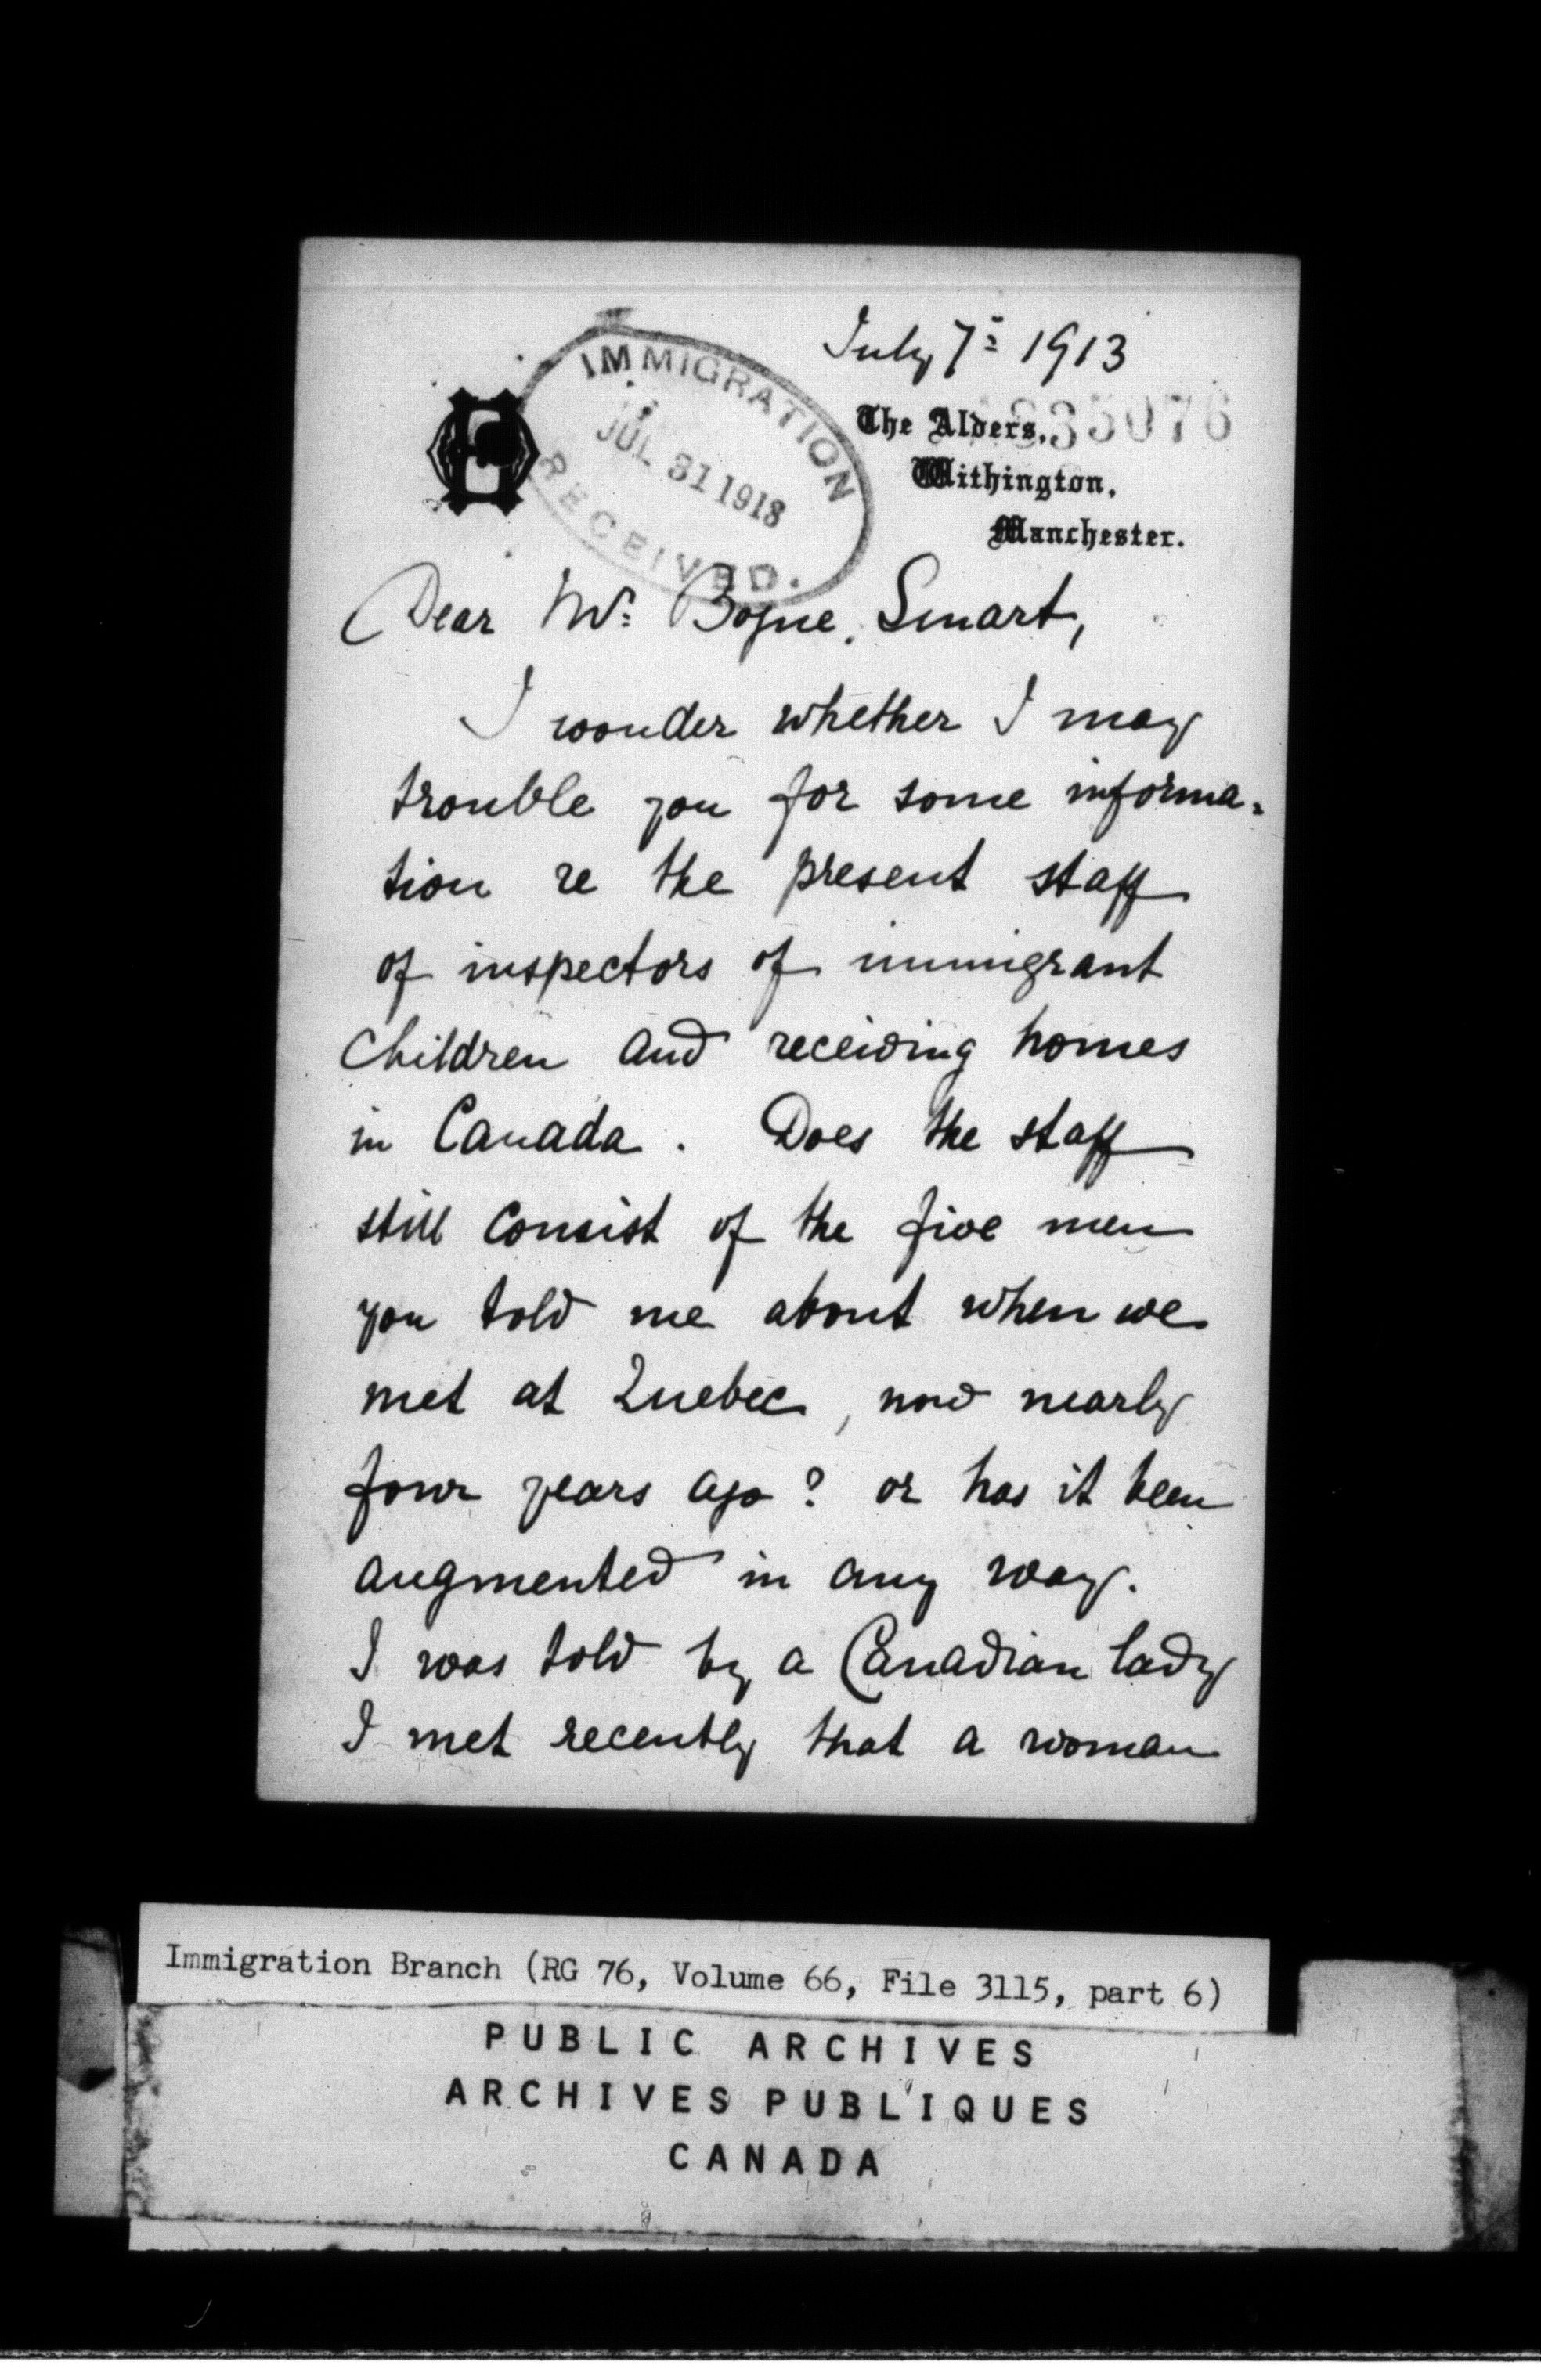 July 7th 1913
IMMIGRATION
JUL 31 1913
RECEIVED.
835076
The Alders,
Withington,
Manchester.
Dear Mr. Bogue Smart,
I wonder whether I may
trouble you for some informa-
tion re the present staff
of inspectors of immigrant
children and receiving homes
in Canada. Does the staff
still consist of the five men
you told me about when we
met at Quebec, now nearly
four years ago? or has it been
augmented in any way.
I was told by a Canadian lady
I met recently that a woman
Immigration Branch (RG 76, Volume 66, File 3115, part 6)
PUBLIC ARCHIVES
ARCHIVES PUBLIQUES
CANADA